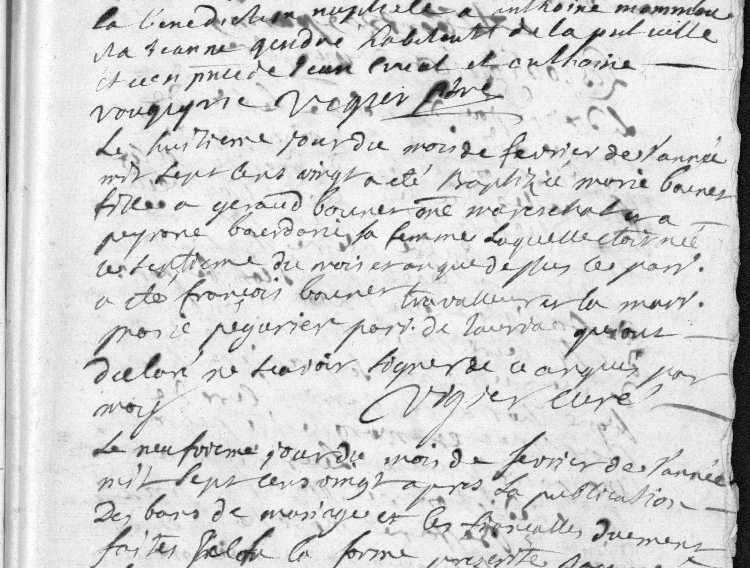 la benediction nuptiale a anthoine mommou
et a Jeanne gendre habitants de la pnt ville
et ce en pnce de Jean et anthoine
Vigier ptre
Le huitieme jour du mois de fevrier de l'année
mil sept cens vingt a eté Baptizée marie bouner
fille a geraud bouner mareschal et a
peyrone sa femme laquelle etoit née
le septieme du mois et an que dessus le parr.
a eté françois bouner travailleur et la marr.
pegurier parr. de qui ont
declaré ne scavoir signer de ce enquis par
moy Vigier curé
Le neufvieme jour du mois de fevrier de l'année
mil sept cens vingt apres la publication
des bans de mariage et les fiancalles duement
faites selon la forme